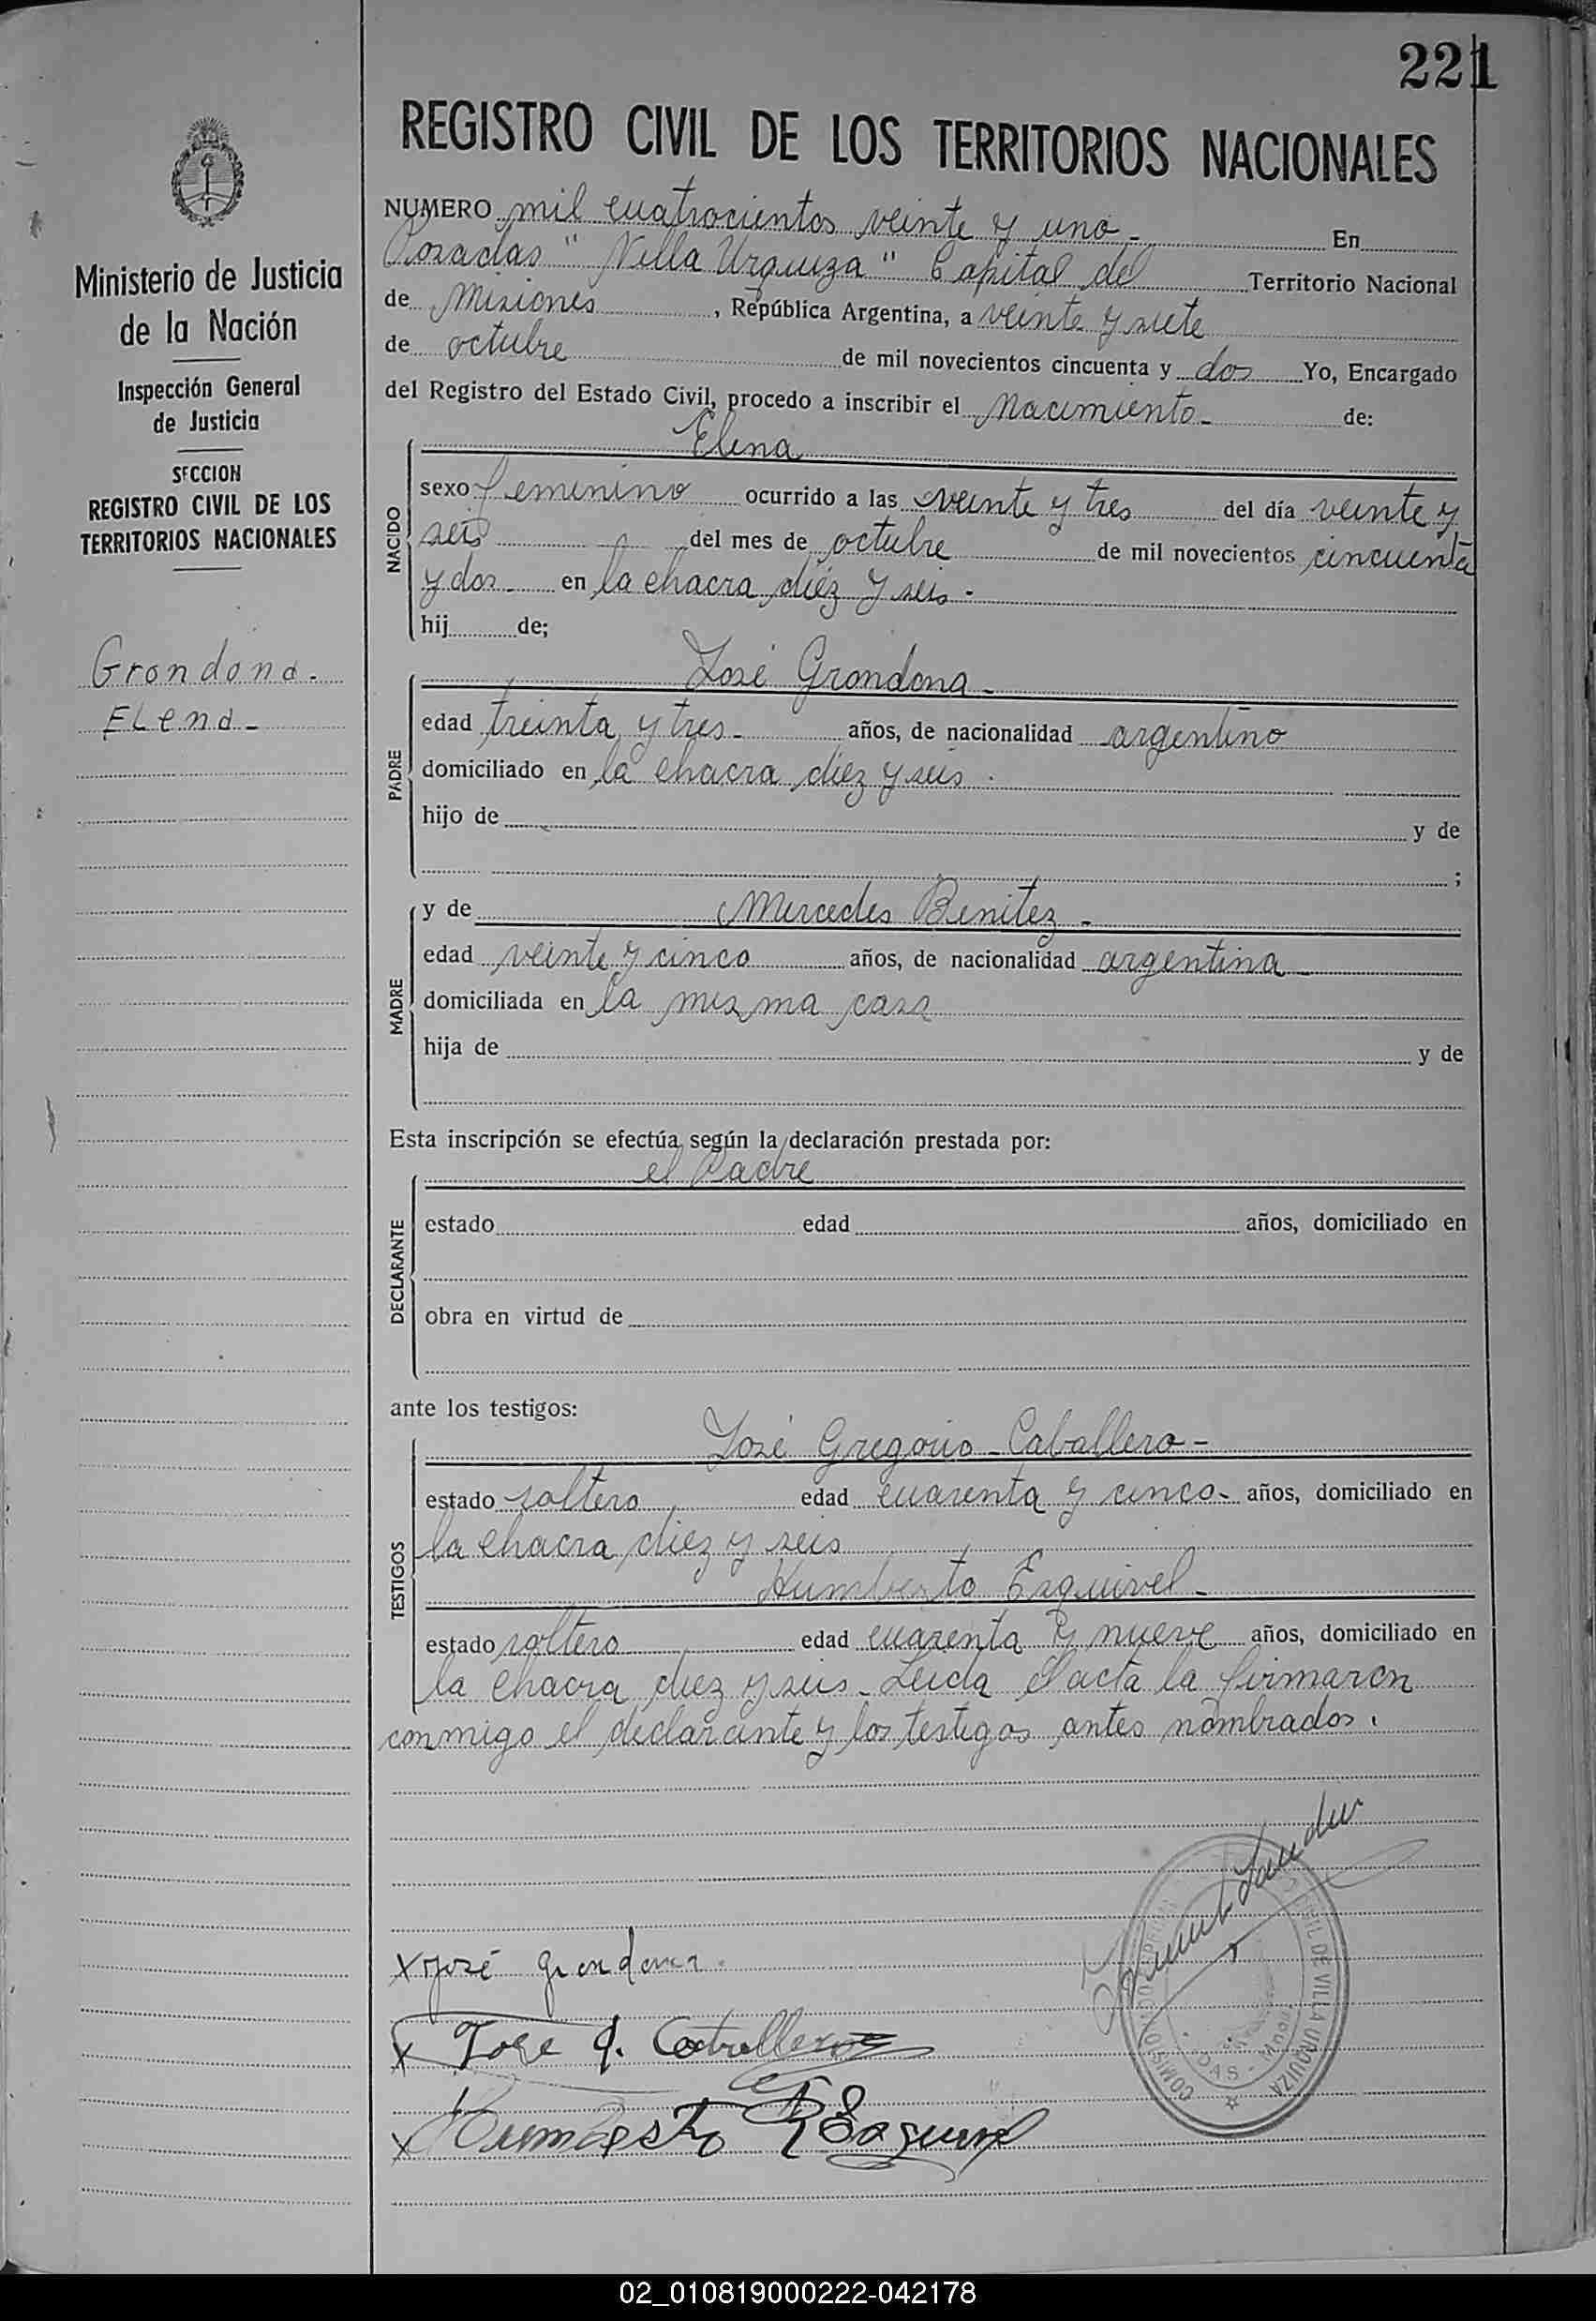 221
REGISTRO CIVIL DE LOS TERRITORIOS NACIONALES
Ministerio de Justicia
de la Nación
Inspección General
de Justicia
SECCION
REGISTRO CIVIL DE LOS
TERRITORIOS NACIONALES
Grondona.
Elena-
NUMERO mil cuatrocientos veinte y uno- En
Posadas "Villa Urquiza" Capital del Territorio Nacional
de Misiones, República Argentina, a veinte y siete
de octubre de mil novecientos cincuenta y dos Yo, Encargado
del Registro del Estado Civil, procedo a inscribir el Nacimiento- de:
NACIDO
Elena
sexo femenino ocurrido a las veinte y tres del día veinte y
seis del mes de octubre de mil novecientos cincuenta
y dos- en la chacra diez y seis-
hij de;
PADRE
José Grondona-
edad treinta y tres- años, de nacionalidad argentino
domiciliado en la chacra diez y seis.
hijo de y de
;
MADRE
y de Mercedes Benitez-
edad veinte y cinco años, de nacionalidad argentina-
domiciliada en la misma casa
hija de y de
Esta inscripción se efectúa según la declaración prestada por:
DECLARANTE
el Padre
estado edad años, domiciliado en
obra en virtud de
ante los testigos:
TESTIGOS
José Gregorio-Caballero-
estado soltero edad cuarenta y cinco- años, domiciliado en
la chacra diez y seis
Humberto Esquivel-
estado soltero edad cuarenta y nueve años, domiciliado en
la chacra diez y seis- Leida el acta la firmaron
conmigo el declarante y los testigos antes nombrados.
X José Grondona.
X Jose G. Caballero
X Humberto Esquivel
CIVIL DE VILLA URQUIZA
02_010819000222-042178